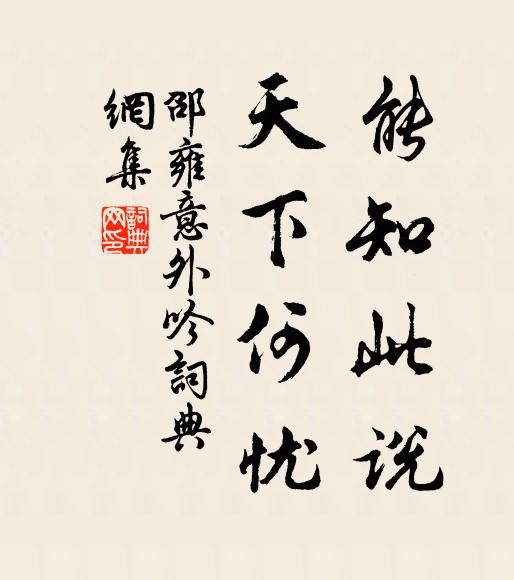 能知此说
天下何忧
邵雍意外吟詞典
網集
詞典
网印